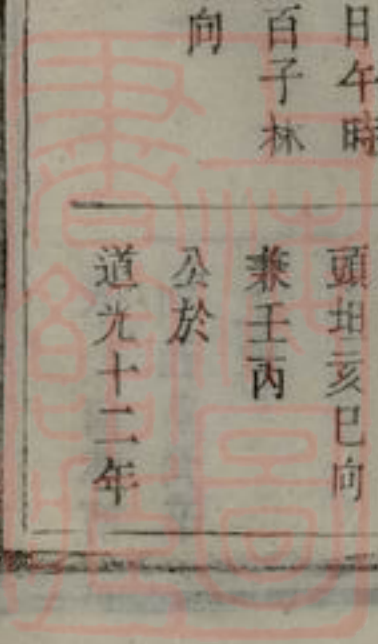 日午時
百子林
向
頭坩亥巳向
兼壬丙
公於
道光十二年